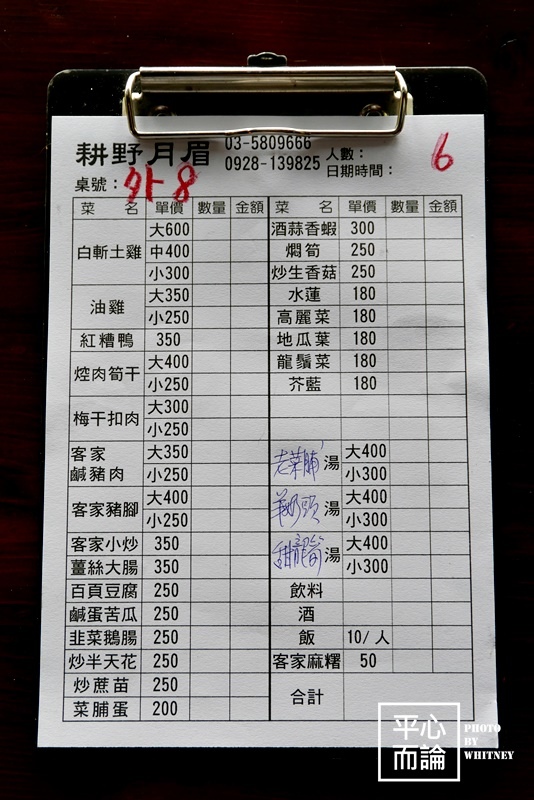 耕野月眉
03-5809666
0928-139825
人數：
日期時間：
6
桌號：外8-1
菜 名 單價 數量 金額
白斬土雞 大600
中400
小300
油雞 大350
小250
紅糟鴨 350
焢肉筍干 大400
小250
梅干扣肉 大300
小250
客家鹹豬肉 大350
小250
客家豬腳 大400
小250
客家小炒 350
薑絲大腸 350
百頁豆腐 250
鹹蛋苦瓜 250
韭菜鵝腸 250
炒半天花 250
炒蔗苗 250
菜脯蛋 200
菜 名 單價 數量 金額
酒蒜香蝦 300
燜筍 250
炒生香菇 250
水蓮 180
高麗菜 180
地瓜葉 180
龍鬚菜 180
芥藍 180
老菜脯湯 大400
小300
羊奶頭湯 大400
小300
甜龍筍湯 大400
小300
飲料
酒
飯 10/人
客家麻糬 50
合計
平心而論
PHOTO
BY
WHITNEY